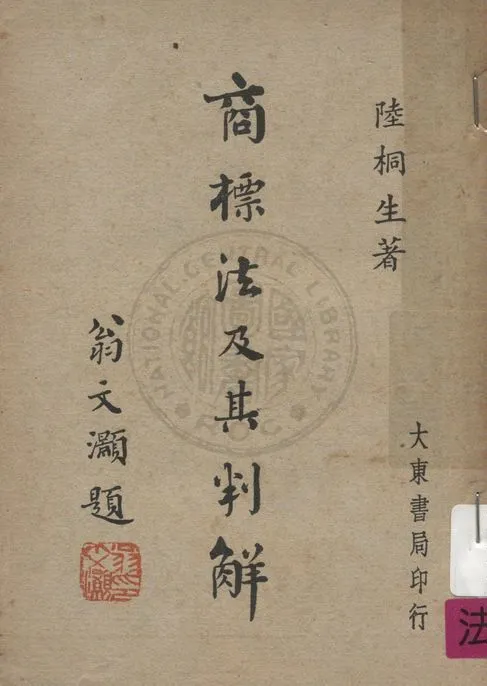 陸桐生著
商標法及其判解
翁文灝題
大東書局印行
NATIONAL CENTRAL LIBRARY
R.O.C.
法